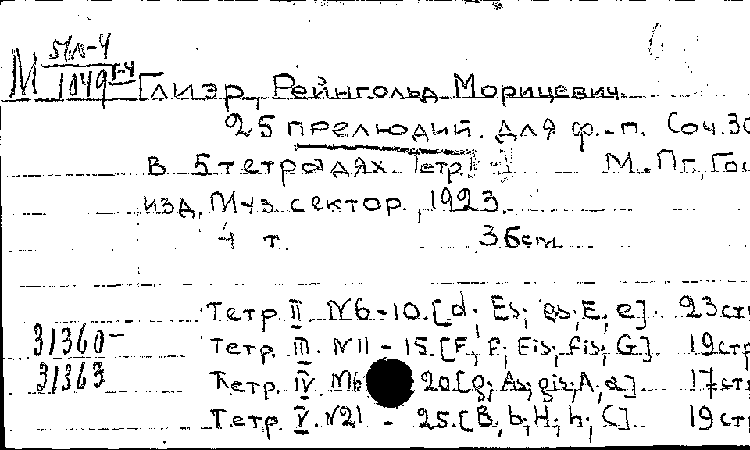 М 5/п-4
1049 г-4 Глиэр, Рейнгольд Морицевич
25 прелюдий. Для ф.-п. Соч. 30
в 5 тетрадях. Тетр. М. Пг, Гос
изд, Муз. сектор, 1923.
4 т. 36 cm
Тетр. II. №6-10. [d; Es; es, E, e]. 23 стр
31360- Тетр. III. №11-15. [F, f; Fis; fis; G]. 19 стр
31363 Тетр. IV 20 [g; As, gis, A, a]. 17 стр
Тетр. V. №21-25. [B, b; H; h; C]. 19 стр